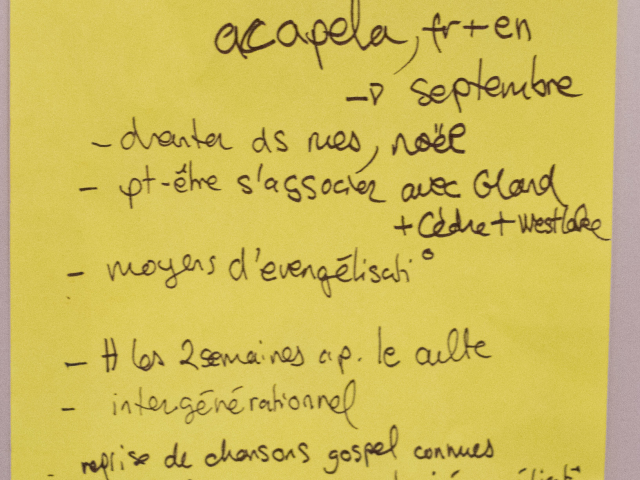 acapela, fr+en
→ septembre
- chanter ds rues, noël
- pt-être s'associer avec Gland
+ Cèdre + Westlake
- moyens d'evengélisati°
- # les 2 semaines ap. le culte
- intergénérationnel
- reprise de chansons gospel connues